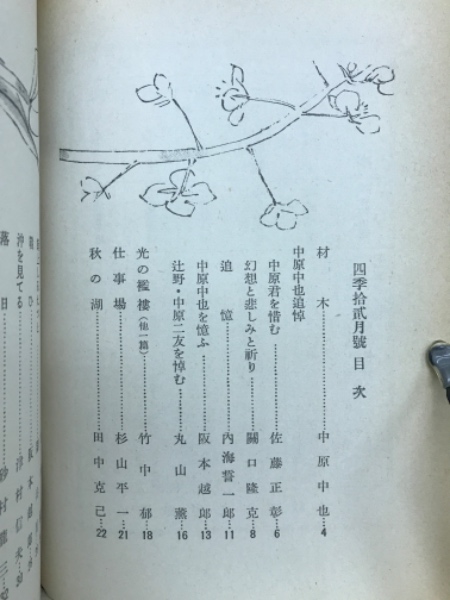 四季拾貳月號 目次
材木…………中原中也…4
中原中也追悼
中原君を惜む…………佐藤正彰…6
幻想と悲しみと祈り…………關口隆克…8
追憶…………內海誓一郎…11
中原中也を憶ふ…………阪本越郎…13
辻野・中原二友を悼む…………丸山薰…16
光の襤褸(他一篇)…………竹中郁…18
仕事場…………杉山平一…21
秋の湖…………田中克己…22
沖を見てる…………津村信夫
落日…………砂村龍三